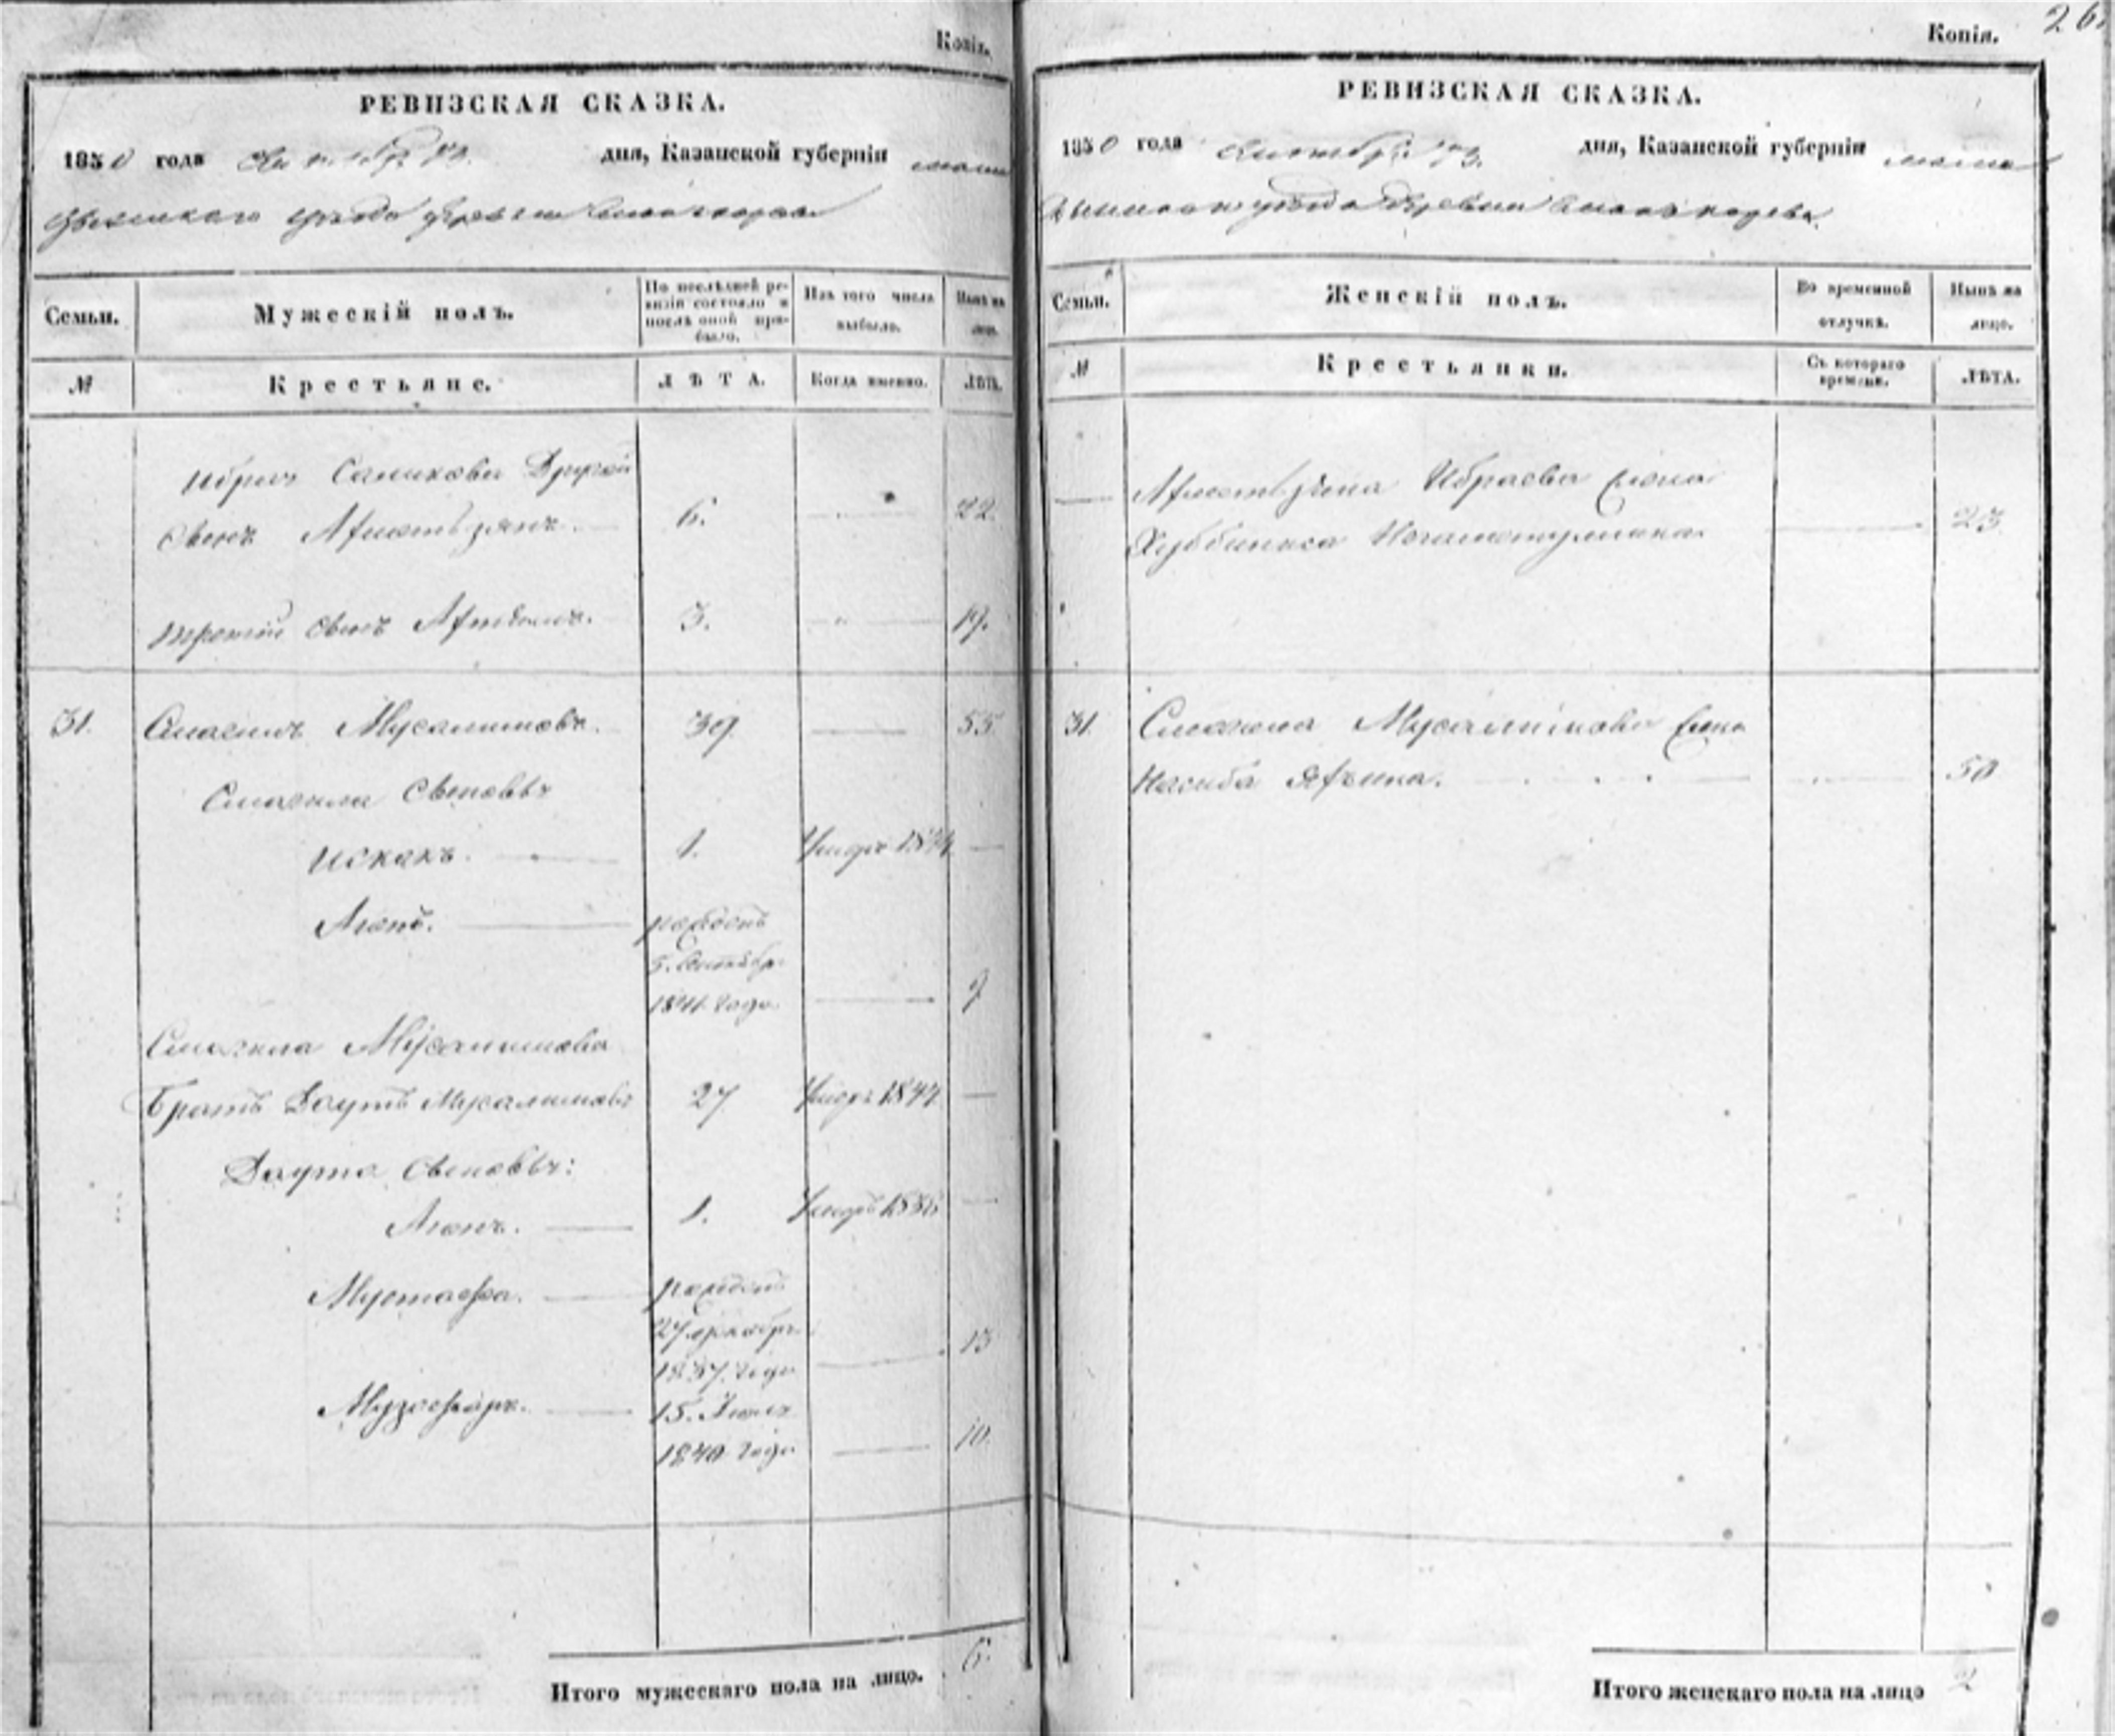 Копія.
РЕВИЗСКАЯ СКАЗКА.
1850 года дня, Казанской губерніи мама
дышскаго уѣзда деревни
Семьи.
Мужескій полъ.
По послѣдней ре-
визіи состояло и
послѣ оной при-
было.
Изъ того числа
выбыло.
Нынѣ на
лицо.
№
Крестьяне.
ЛѢТА.
Когда именно.
ЛѢТА.
Ибрая Саликова Другой
Сынъ 6. 22.
Третій сынъ 3. 19.
31. Смагилъ Мусалимовъ. 39 55.
Смагила Сыновья
Искакъ. 1. Умеръ
рожденъ
5. Сентябр.
1841 года 9
Смагила Мусалимова
Братъ Даутъ Мусалимовъ 27 Умеръ 1844
Даута Сыновья:
1. Умеръ 1836
Мустафа. рожденъ
27 декабр. 13
1837. года
Музафаръ. 15. Июля
1840 года 10.
Итого мужескаго пола на лицо. 6.
Копія. 26.
РЕВИЗСКАЯ СКАЗКА.
1850 года дня, Казанской губерніи мама
дышскаго уѣзда деревни
Семьи.
Женскій полъ.
Во временной
отлучкѣ.
Нынѣ на
лицо.
№
Крестьянки.
Съ котораго
времени.
ЛѢТА.
Ибраева жена
23.
31. Смагила Мусалимова жена
50
Итого женскаго пола на лицо 2